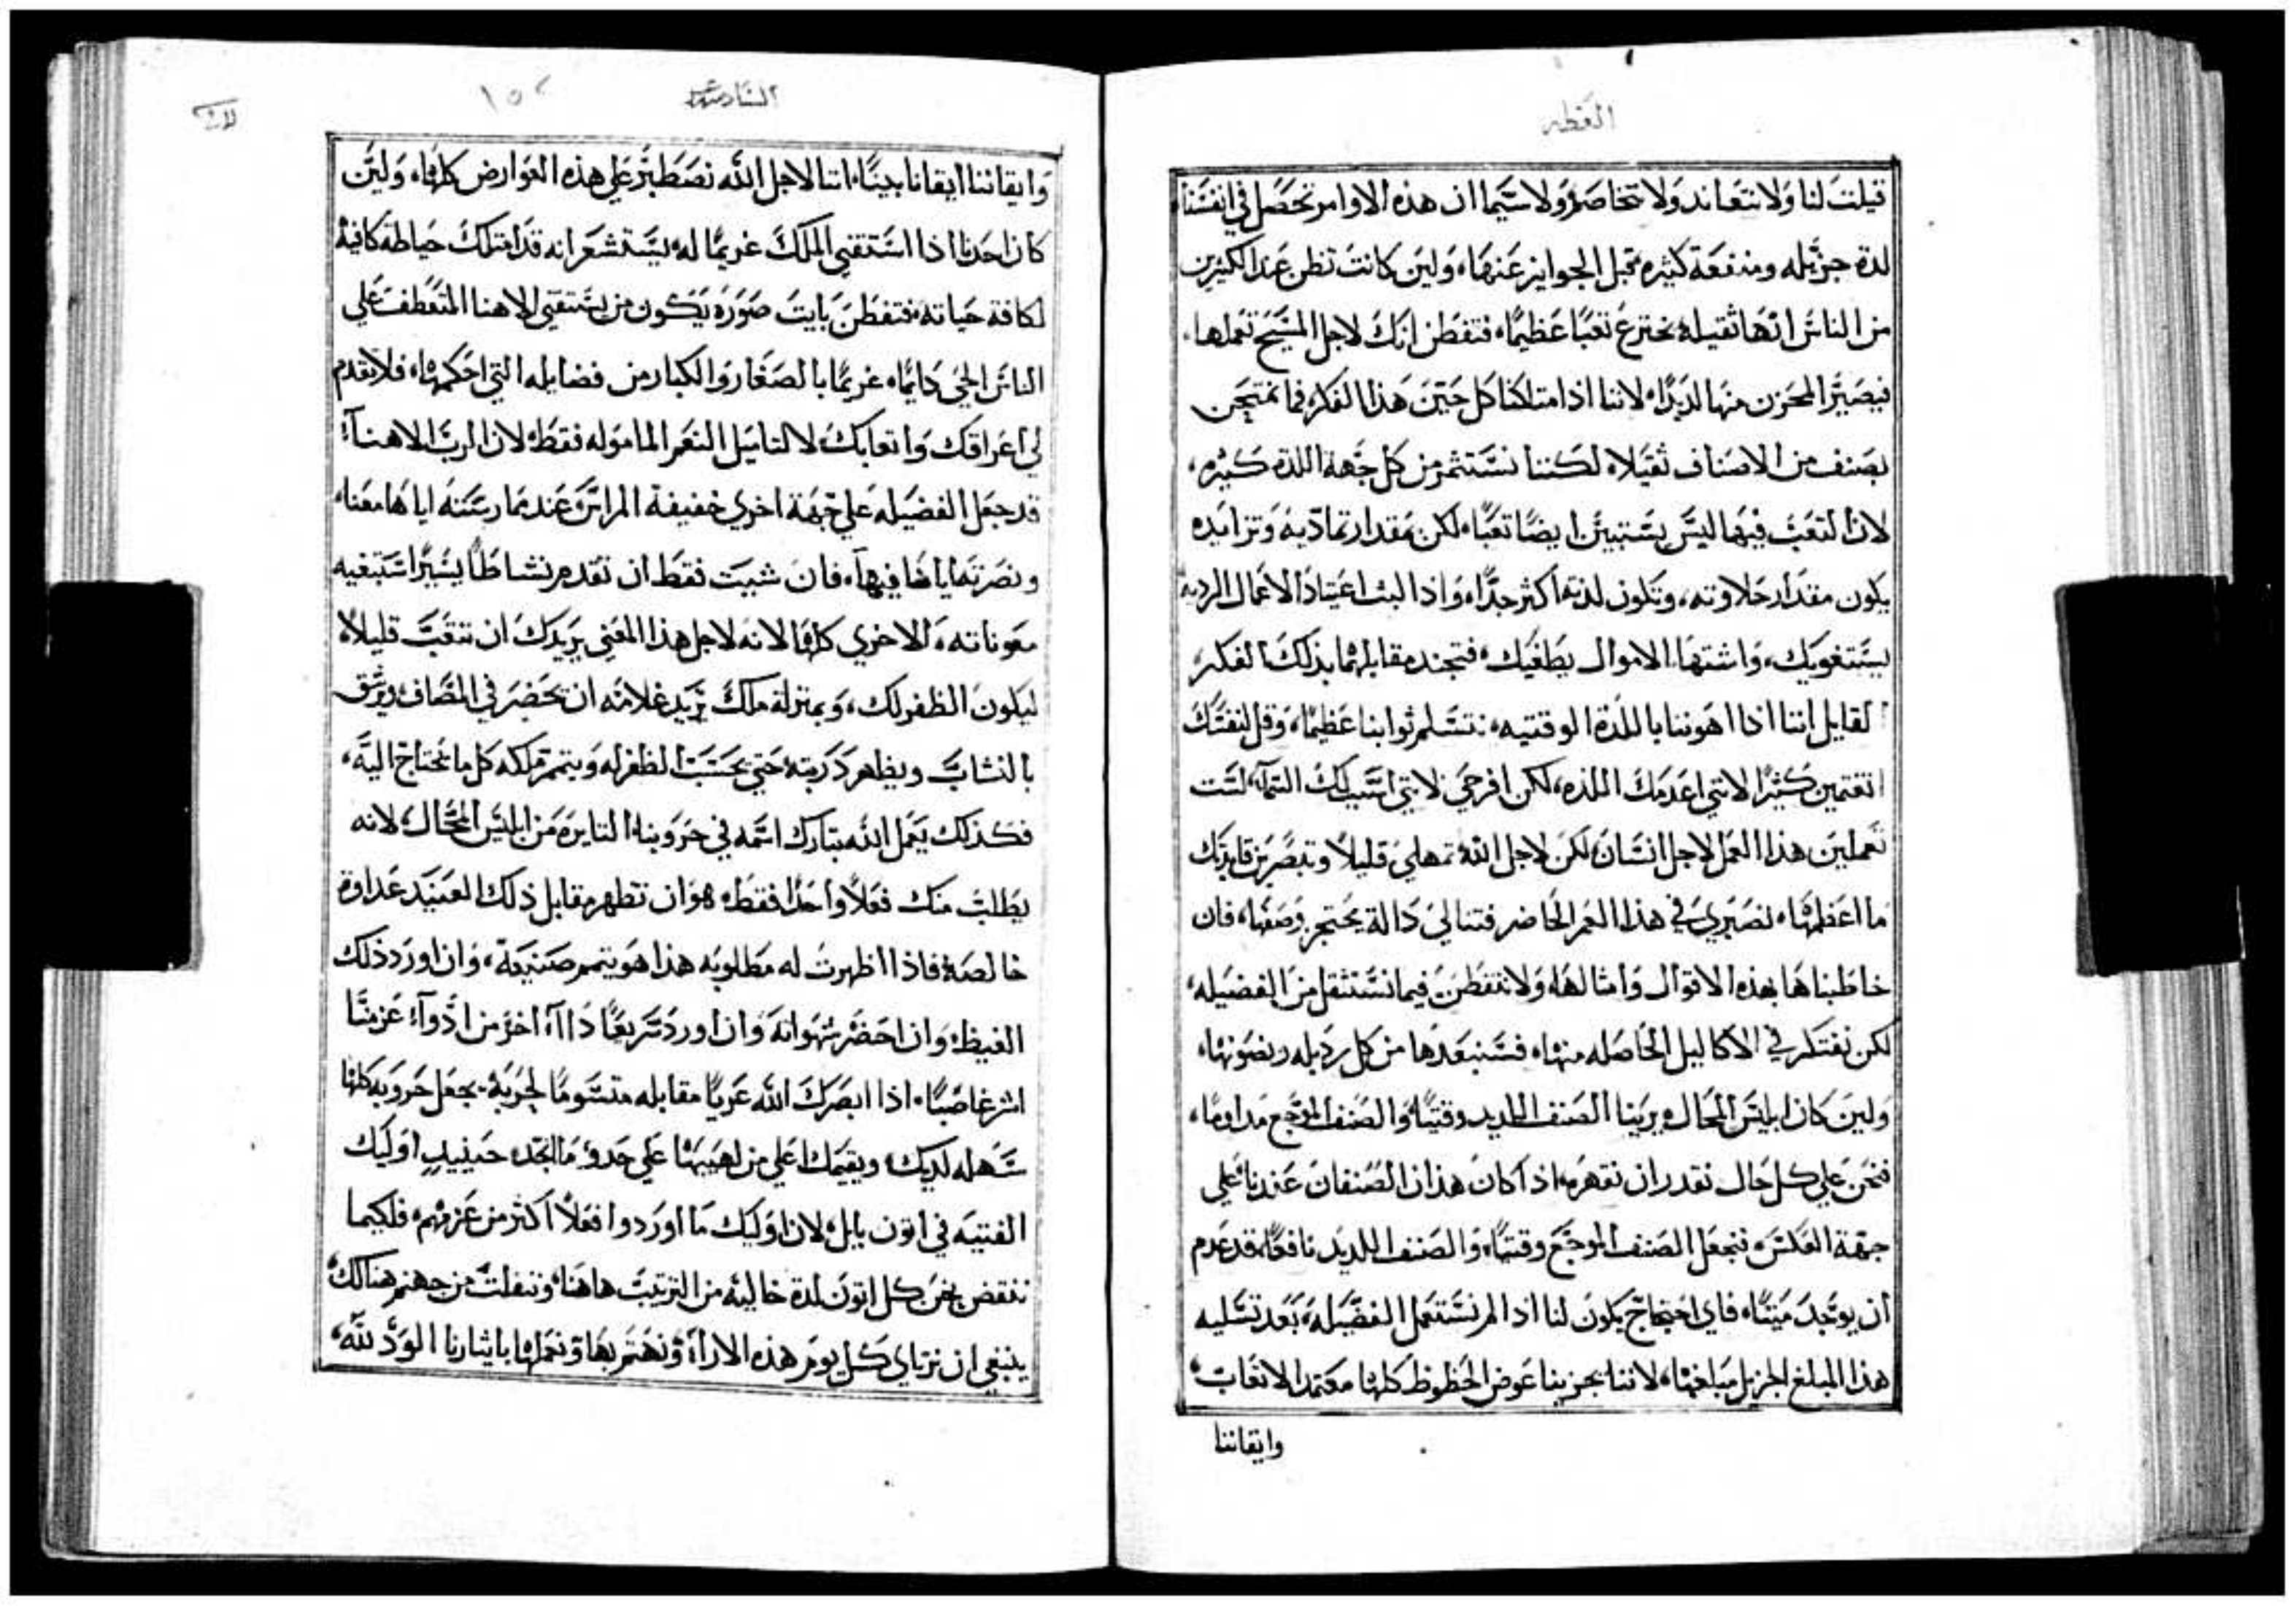 العظه
قيلت لنا ولا نتعاند ولا نتخاصم ولا سيما ان هذه الاوامر تحصل في انفسنا
لدة جزيله ومنفعة كثيره قبل الجوايز عنها، ولين كانت تظن عند الكثيرين
من الناس انها ثقيله تخترع تعبًا عظيمًا، فتفطن انك لاجل المسيح تعملها،
فيصير المحزن منها لديدًا، لاننا اذا امتلكنا كل حين هذا الفكر، فما نمتحن
بصنف من الاصناف ثقيلاً، لكننا نستثمر من كل جهة اللدة كثيره،
لان التعب فيها ليس يستبين ايضًا تعبًا، لكن بمقدار تماديه وتزايده
يكون مقدار حلاوته، وتكون لدته اكثر جدًا، واذا البث اعتياد الاعمال الرديه
يستغويك، واشتهاء الاموال يطغيك، فتجند مقابلهما بذلك الفكر،
القايل اننا اذا اهوننا باللدة الوقتيه، نتسلم ثوابنا عظيمًا، وقل لنفسك
اتغتمين كثيرًا لانني اعدمك اللذه، لكن افرحي لانني اسبب لك السماء، لست
تعملين هذا العمل لاجل انسان، لكن لاجل الله، تمهلي قليلاً وتبصرين فايدتك
ما اعظمها، نصبري في هذا العمر الحاضر فتنالي دالة يحتجز وصفها، فان
خاطبناها بهذه الاقوال وامثالها، ولا نتفطن فيما نستثقل من الفضيله،
لكن نفتكر في الاكاليل الحاصله منها، فسنبعدها من كل رديله ونصونها،
ولين كان ابليس المحال، يرينا الصنف اللديد وقتيًا، والصنف الموجع مداومًا،
فنحن علي كل حال نقدر ان نقهره، اذ كان هذان الصنفان عندنا، علي
جهة العكس، فنجعل الصنف الموجع وقتيًا، والصنف اللديد نافعًا، قد عدم
ان يوجد ميتًا، فاي احتجاج يكون لنا اذا لم نستعمل الفضيله، بعد تسليه
هذا المبلغ الجزيل مبلغها، لاننا يجزينا عوض الحظوظ كلها معتمد الاتعاب،
وايقاننا
السادسه
١٥٢
وايقاننا ايقانا بينًا، اننا لاجل الله نصطبر علي هذه العوارض كلها، ولين
كان احدنا اذا استقني الملك غريمًا له، يستشعر انه قد امتلك حياطة كافية
لكافة حياته، فتفطن بايت صورة يكون من يستقني الاهنا المتعطف علي
الناس الحي دايمًا، غريمًا بالصغار والكبار من فضايله التي احكمها، فلا تقدم
لي اعراقك واتعابك، لا لتاميل النعم الماموله فقط، لان الرب الاهنا
قد جعل الفضيله علي جهة اخري خفيفة المراس، عند مارسته اياها معنا،
ونصرته ايانا فيها، فان شيت فقط ان تقدم نشاطًا يسيرًا استتبعيه
معوناته، الاخري كلها، لانه لاجل هذا المعني يريدك ان تتعب قليلاً
ليكون الظفر لك، وبمنزلة ملك يريد غلامه ان يحضر في المصاف ويرشق
بالنشاب ويظهر دربته، حتي يحسب الظفر له ويتمم ملكه كل ما يحتاج اليه،
فكذلك يعمل الله تبارك اسمه في حروبنا الثايره من ابليس المحال، لانه
يطلب منك فعلاً واحدًا فقط، هو ان تظهر مقابل ذلك العنيد عداوة
خالصة، فاذا اظهرت له مطلوبه هذا هو يتمم صنيعه، وان اورد ذلك
الغيظ، وان احضر شهوانه وان اورد سريعًا داًء اخر من ادواء عزمنا
اشر غاصبًا، اذا ابصرك الله عريًا مقابله متسومًا لحربه، يجعل حروبه كلها
سهله لديك، ويقيمك اعلي من لهيبها علي حدو ما انجد حينيدٍ اوليك
الفتيه في اتون بابل، لان اوليك ما اوردوا فعلاً اكثر من عزمهم، فلكيما
ننقض نحن كل اتون لدة خاليه من الترتيب هاهنا، ونتفلت من جهنم هنالك،
ينبغي ان نرتاي كل يوم هذه الاراء، ونهتم بها ونعملها بايثارنا الود لله،